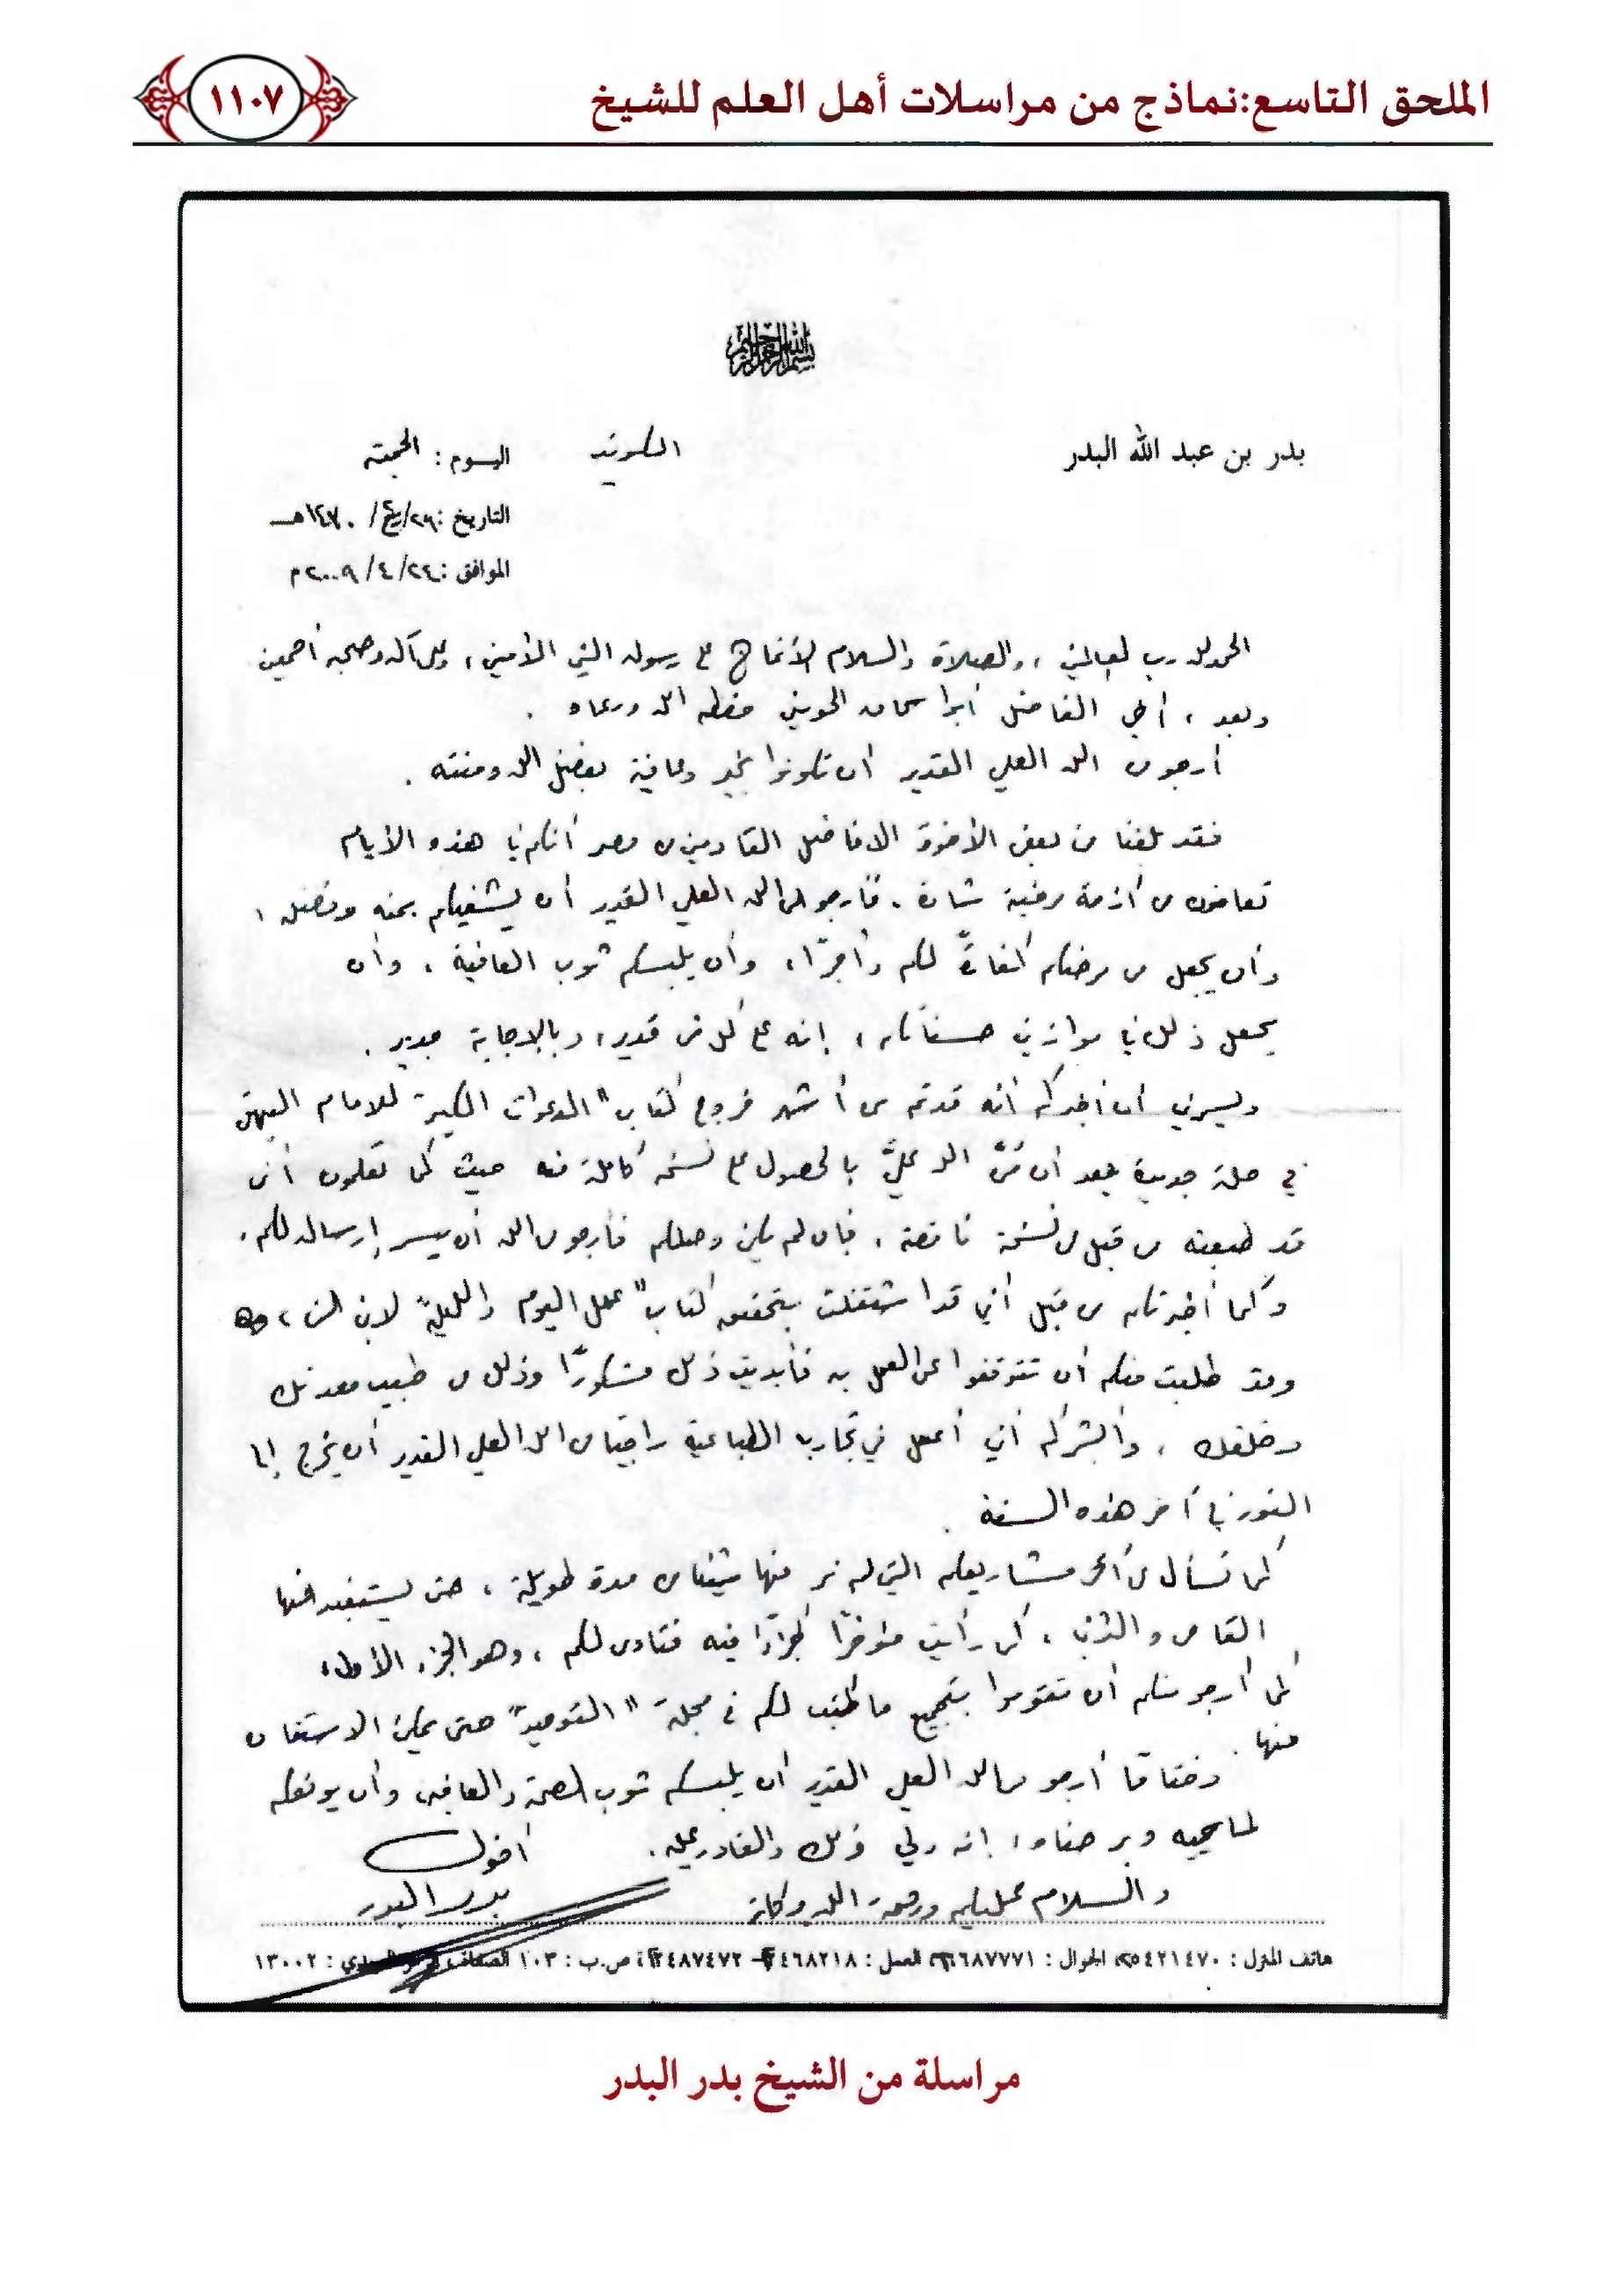 الملحق التاسع:نماذج من مراسلات أهل العلم للشيخ
١١٠٧
بسم الله الرحمن الرحيم
بدر بن عبد الله البدر
الكويت
اليوم : الجمعة
التاريخ : ٢٨/ربيع/١٤٣٠هـ
الموافق : ٢٤/٤/٢٠٠٩م
الحمد لله رب العالمين ، والصلاة والسلام الأتمان على رسوله النبي الأمين ، وعلى آله وصحبه أجمعين
وبعد ، أخي الفاضل أبو اسحاق الحويني حفظه الله ورعاه .
أرجو من الله العلي القدير أن تكونوا بخير وعافية بفضل الله ومنته .
فقد بلغنا من بعض الأخوة الافاضل القادمين من مصر أنكم في هذه الأيام
تعانون من أزمة مرضية شادة . فأرجو من الله العلي القدير أن يشفيكم بمنه وفضله ،
وأن يجعل من مرضكم كفارةً لكم وأجرًا ، وأن يلبسكم ثوب العافية ، وأن
يجعل ذلك في موازين حسناتكم ، إنه على كل شيء قدير ، وبالإجابة جدير .
ويسرني أن أخبركم أنه قد تم من أشهر خروج كتاب " الدعوات الكبير " للامام البيهقي
في حلة جديدة بعد أن منَّ الله عليَّ بالحصول على نسخة كاملة منه حيث كما تعلمون أني
قد طبعته من قبل من نسخة ناقصة ، فإن لم يكن وصلكم فأرجو من الله أن ييسر إرساله لكم .
وكما أخبرتكم من قبل أني قد اشتغلت بتحقيق كتاب " عمل اليوم والليلة " لابن السني ،
وقد طلبت منكم أن تتوقفوا عن العمل به فأبديت ذلك مشكورًا وذلك من طيب معدنك
وخلقك ، وأبشركم أني أعمل في تجاربه الطباعية راجيا من الله العلي القدير أن يخرج إلى
النور في آخر هذه السنة .
كما نسأل عن أكثر مشاريعكم التي لم نر منها شيئا من مدة طويلة ، حتى يستفيد منها
القاصي والداني ، كما رأيت مؤخرًا جزءًا فيه فتاوى لكم ، وهو الجزء الأول ،
كما أرجو منكم أن تقوموا بتجميع ما كتب لكم في مجلة " التوحيد " حتى يمكن الاستفادة
منها .
وختامًا أرجو من الله العلي القدير أن يلبسكم ثوب الصحة والعافية ، وأن يوفقكم
لما يحبه ويرضاه ، إنه ولي ذلك والقادر عليه .
أخوك
والسلام عليكم ورحمة الله وبركاته
بدر البدر
هاتف المنزل : ٥٤٢١٤٧٠ الجوال : ٦٦٨٧٧٧١ العمل : ٤٦٨٢١٨ – ٤٨٧٤٧٢ ص.ب : ١٠٣ الصفاة الرمز البريدي : ١٣٠٠٢
مراسلة من الشيخ بدر البدر